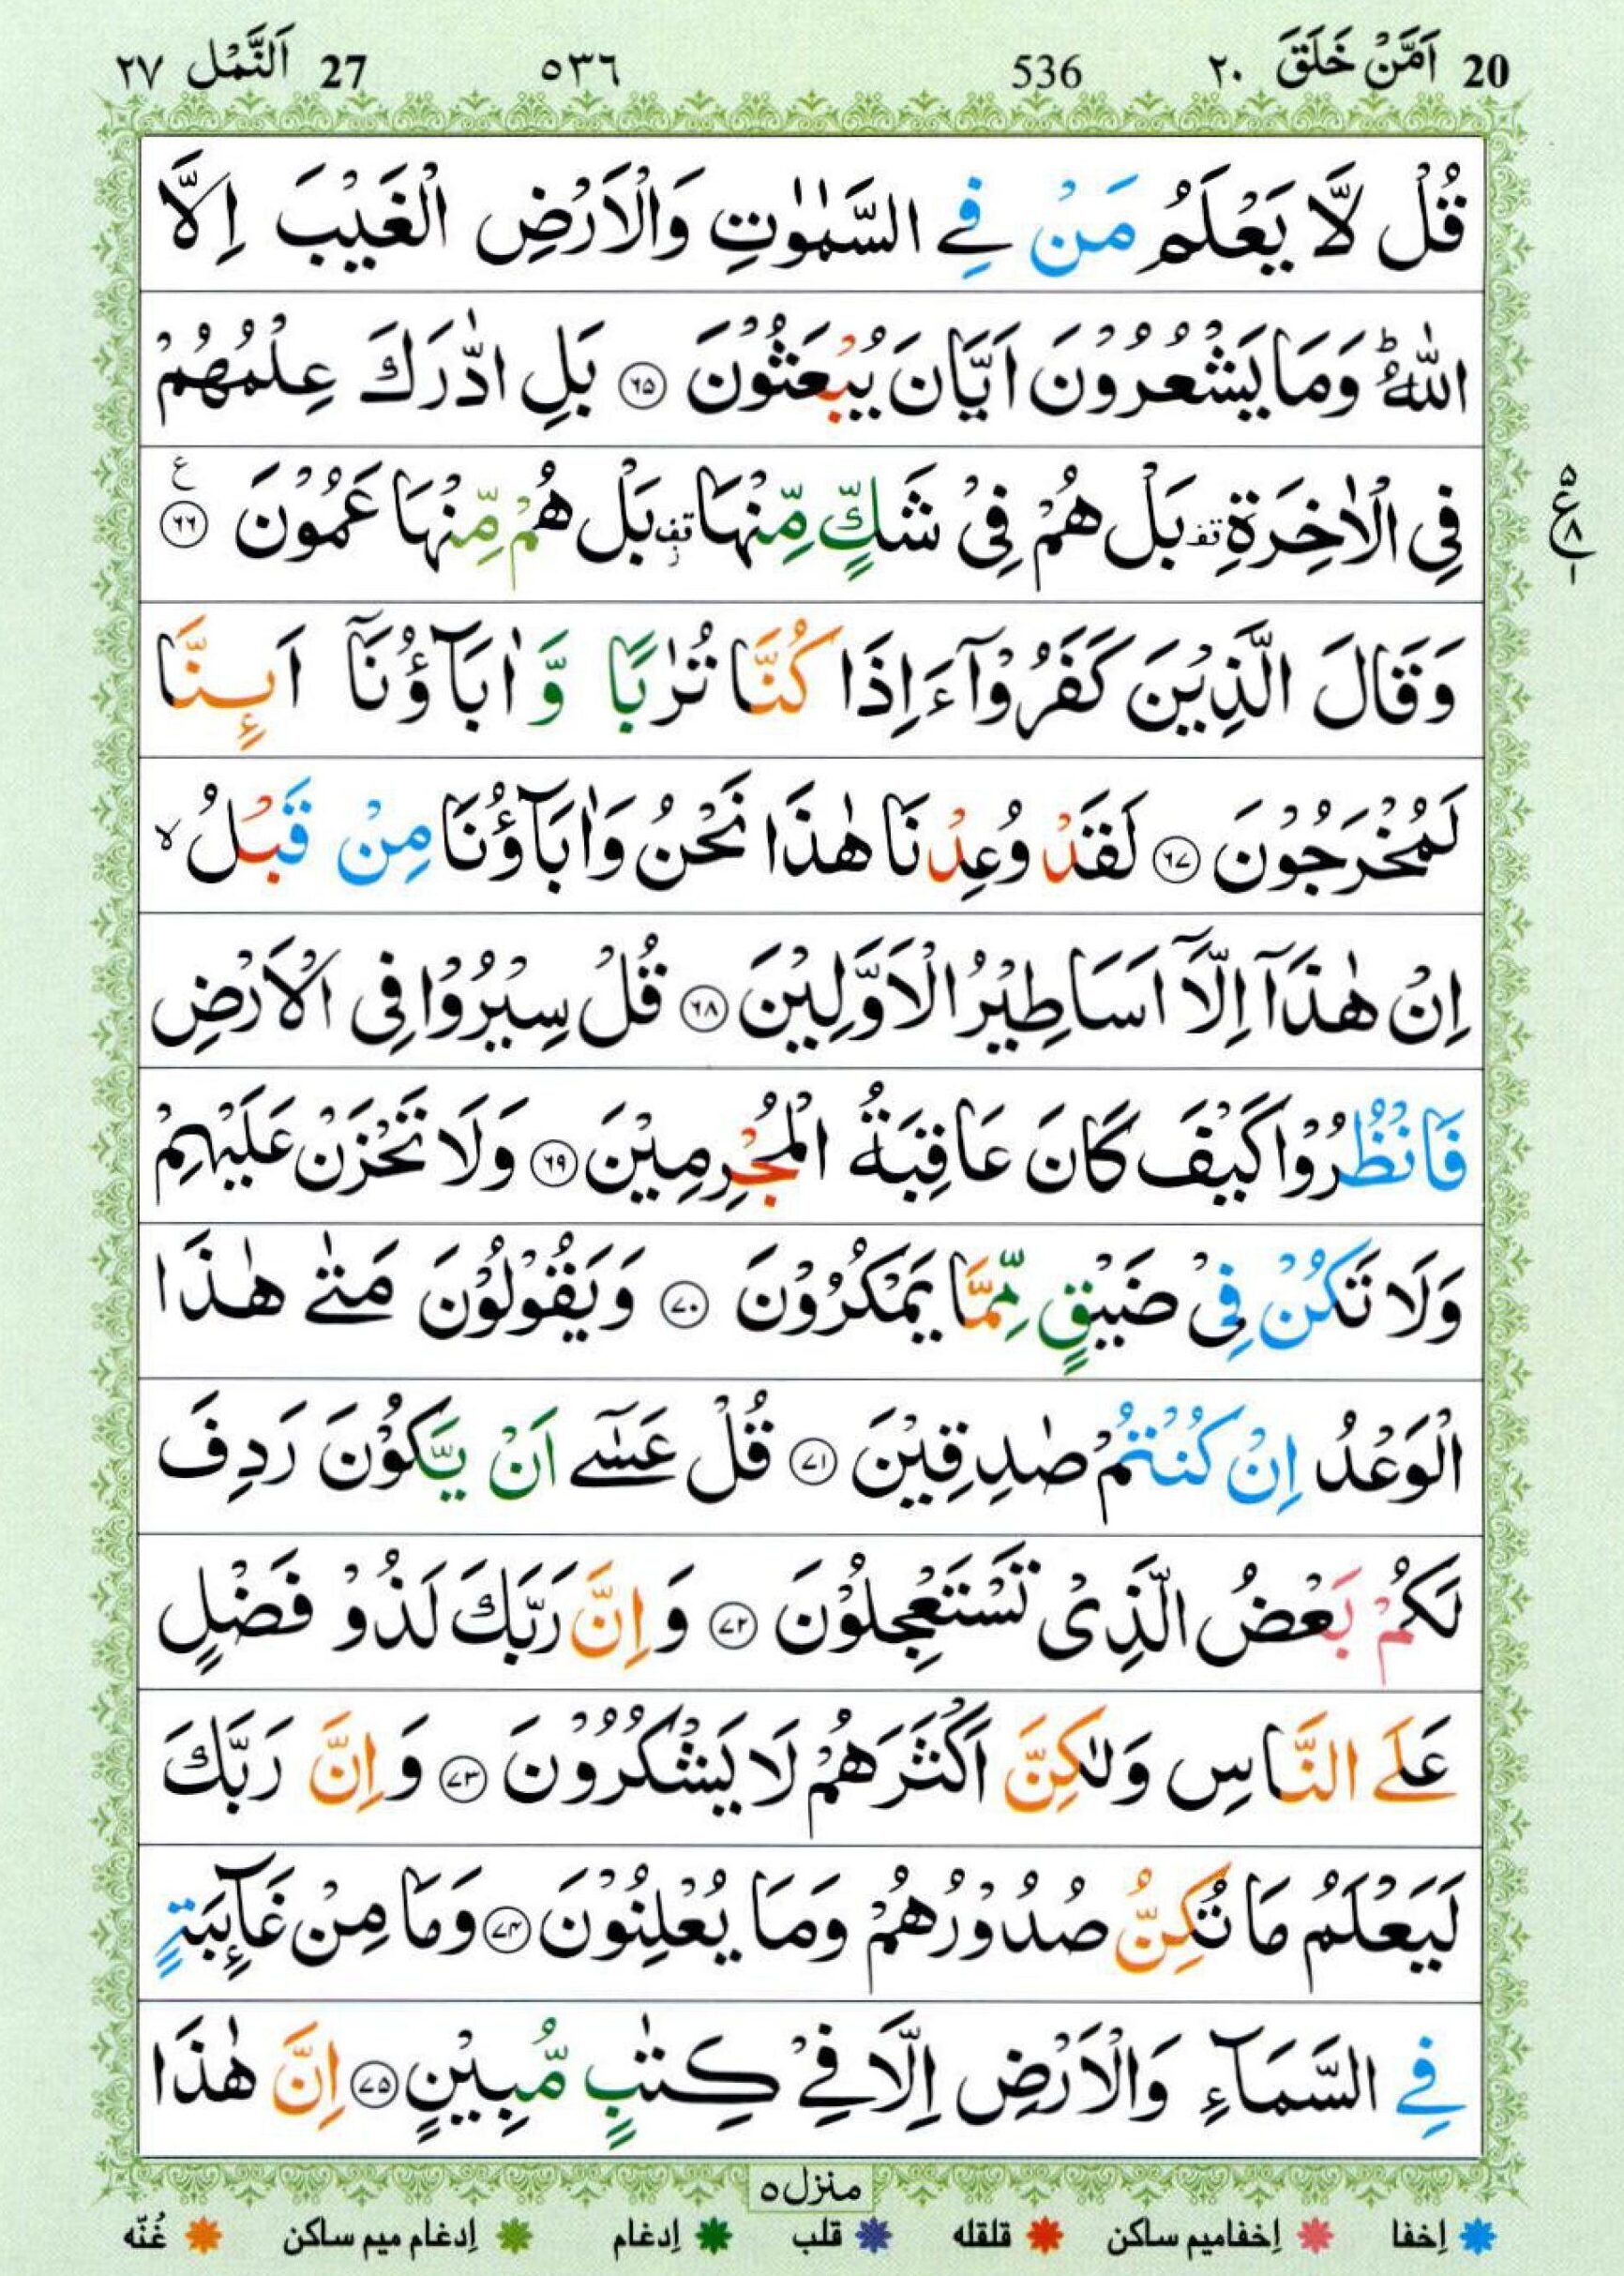 20 اَمَّنْ خَلَقَ ٢٠ 536 ٥٣٦ 27 اَلنَّمْل ٢٧
قُلْ لَّا يَعْلَمُ مَنْ فِي السَّمٰوٰتِ وَالْاَرْضِ الْغَيْبَ اِلَّا
اللّٰهُ ؕ وَمَا يَشْعُرُوْنَ اَيَّانَ يُبْعَثُوْنَ ٦٥ بَلِ ادّٰرَكَ عِلْمُهُمْ
فِى الْاٰخِرَةِ تف بَلْ هُمْ فِىْ شَكٍّ مِّنْهَا تف بَلْ هُمْ مِّنْهَا عَمُوْنَ ٦٦ ع
٥ ع ٨ ١
وَقَالَ الَّذِيْنَ كَفَرُوْٓا ءَاِذَا كُنَّا تُرٰبًا وَّ اٰبَآؤُنَآ اَئِنَّا
لَمُخْرَجُوْنَ ٦٧ لَقَدْ وُعِدْنَا هٰذَا نَحْنُ وَاٰبَآؤُنَا مِنْ قَبْلُ ۙ
اِنْ هٰذَآ اِلَّآ اَسَاطِيْرُ الْاَوَّلِيْنَ ٦٨ قُلْ سِيْرُوْا فِى الْاَرْضِ
فَانْظُرُوْا كَيْفَ كَانَ عَاقِبَةُ الْمُجْرِمِيْنَ ٦٩ وَلَا تَحْزَنْ عَلَيْهِمْ
وَلَا تَكُنْ فِىْ ضَيْقٍ مِّمَّا يَمْكُرُوْنَ ٧٠ وَيَقُوْلُوْنَ مَتٰى هٰذَا
الْوَعْدُ اِنْ كُنْتُمْ صٰدِقِيْنَ ٧١ قُلْ عَسٰٓى اَنْ يَّكُوْنَ رَدِفَ
لَكُمْ بَعْضُ الَّذِىْ تَسْتَعْجِلُوْنَ ٧٢ وَ اِنَّ رَبَّكَ لَذُوْ فَضْلٍ
عَلَى النَّاسِ وَلٰكِنَّ اَكْثَرَهُمْ لَا يَشْكُرُوْنَ ٧٣ وَ اِنَّ رَبَّكَ
لَيَعْلَمُ مَا تُكِنُّ صُدُوْرُهُمْ وَمَا يُعْلِنُوْنَ ٧٤ وَمَا مِنْ غَآئِبَةٍ
فِي السَّمَآءِ وَالْاَرْضِ اِلَّا فِيْ كِتٰبٍ مُّبِيْنٍ ٧٥ اِنَّ هٰذَا
منزل ٥
اِخفا اِخفا میم ساکن قلقله قلب اِدغام اِدغام میم ساکن غُنّه